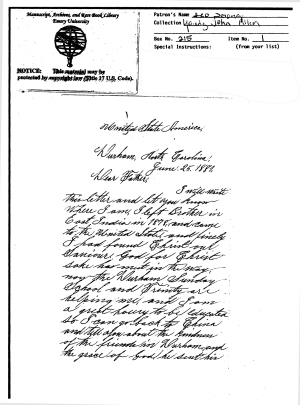 Manuscript, Archives, and Rare Book Library
Emory University
NOTICE: This material may be
protected by copyright law (Title 17 U.S. Code).
Patron's Name
Collection Young John Allen
Box No. 215 Item No. 1
Special Instructions: (from your list)
United State America,
Durham, North Carolina,
June 25. 188
Dear Father,
I will write
this letter and let you know
where I am, I left Brother in
East India in 1878, and came
to the United State, and finely
I had found Christ our
Saviour. God for Christ
sake has met in the way,
now the Durham Sunday
School and Trinity are
helping me, and I am
a great hurry to be educated
so I can go back to China
and tell you about the kindness
of the friends in Durham, and
the grace of God, he sent his